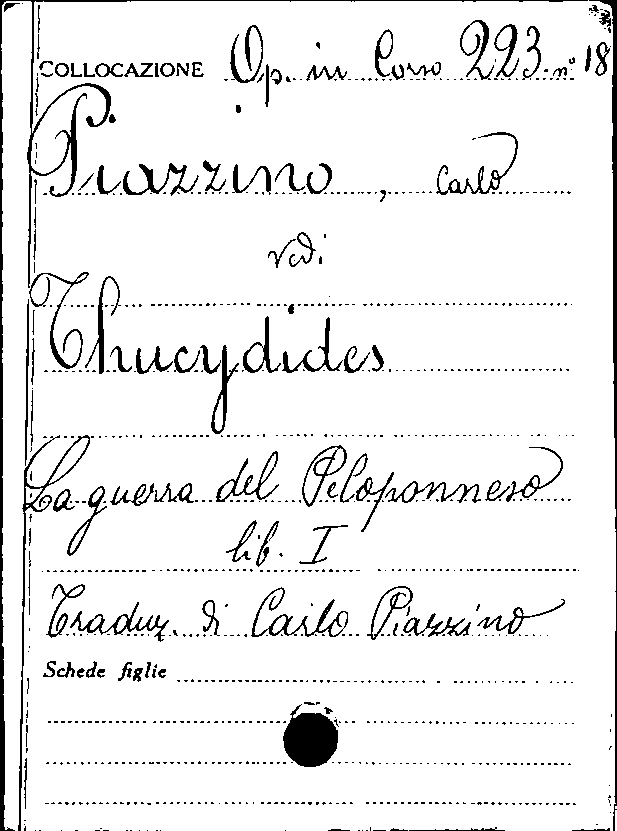 COLLOCAZIONE Op. in Corso 223. nº 18
Piazzino, Carlo
vedi
Thucydides
La guerra del Peloponneso
lib. I
Traduz. di Carlo Piazzino
Schede figlie